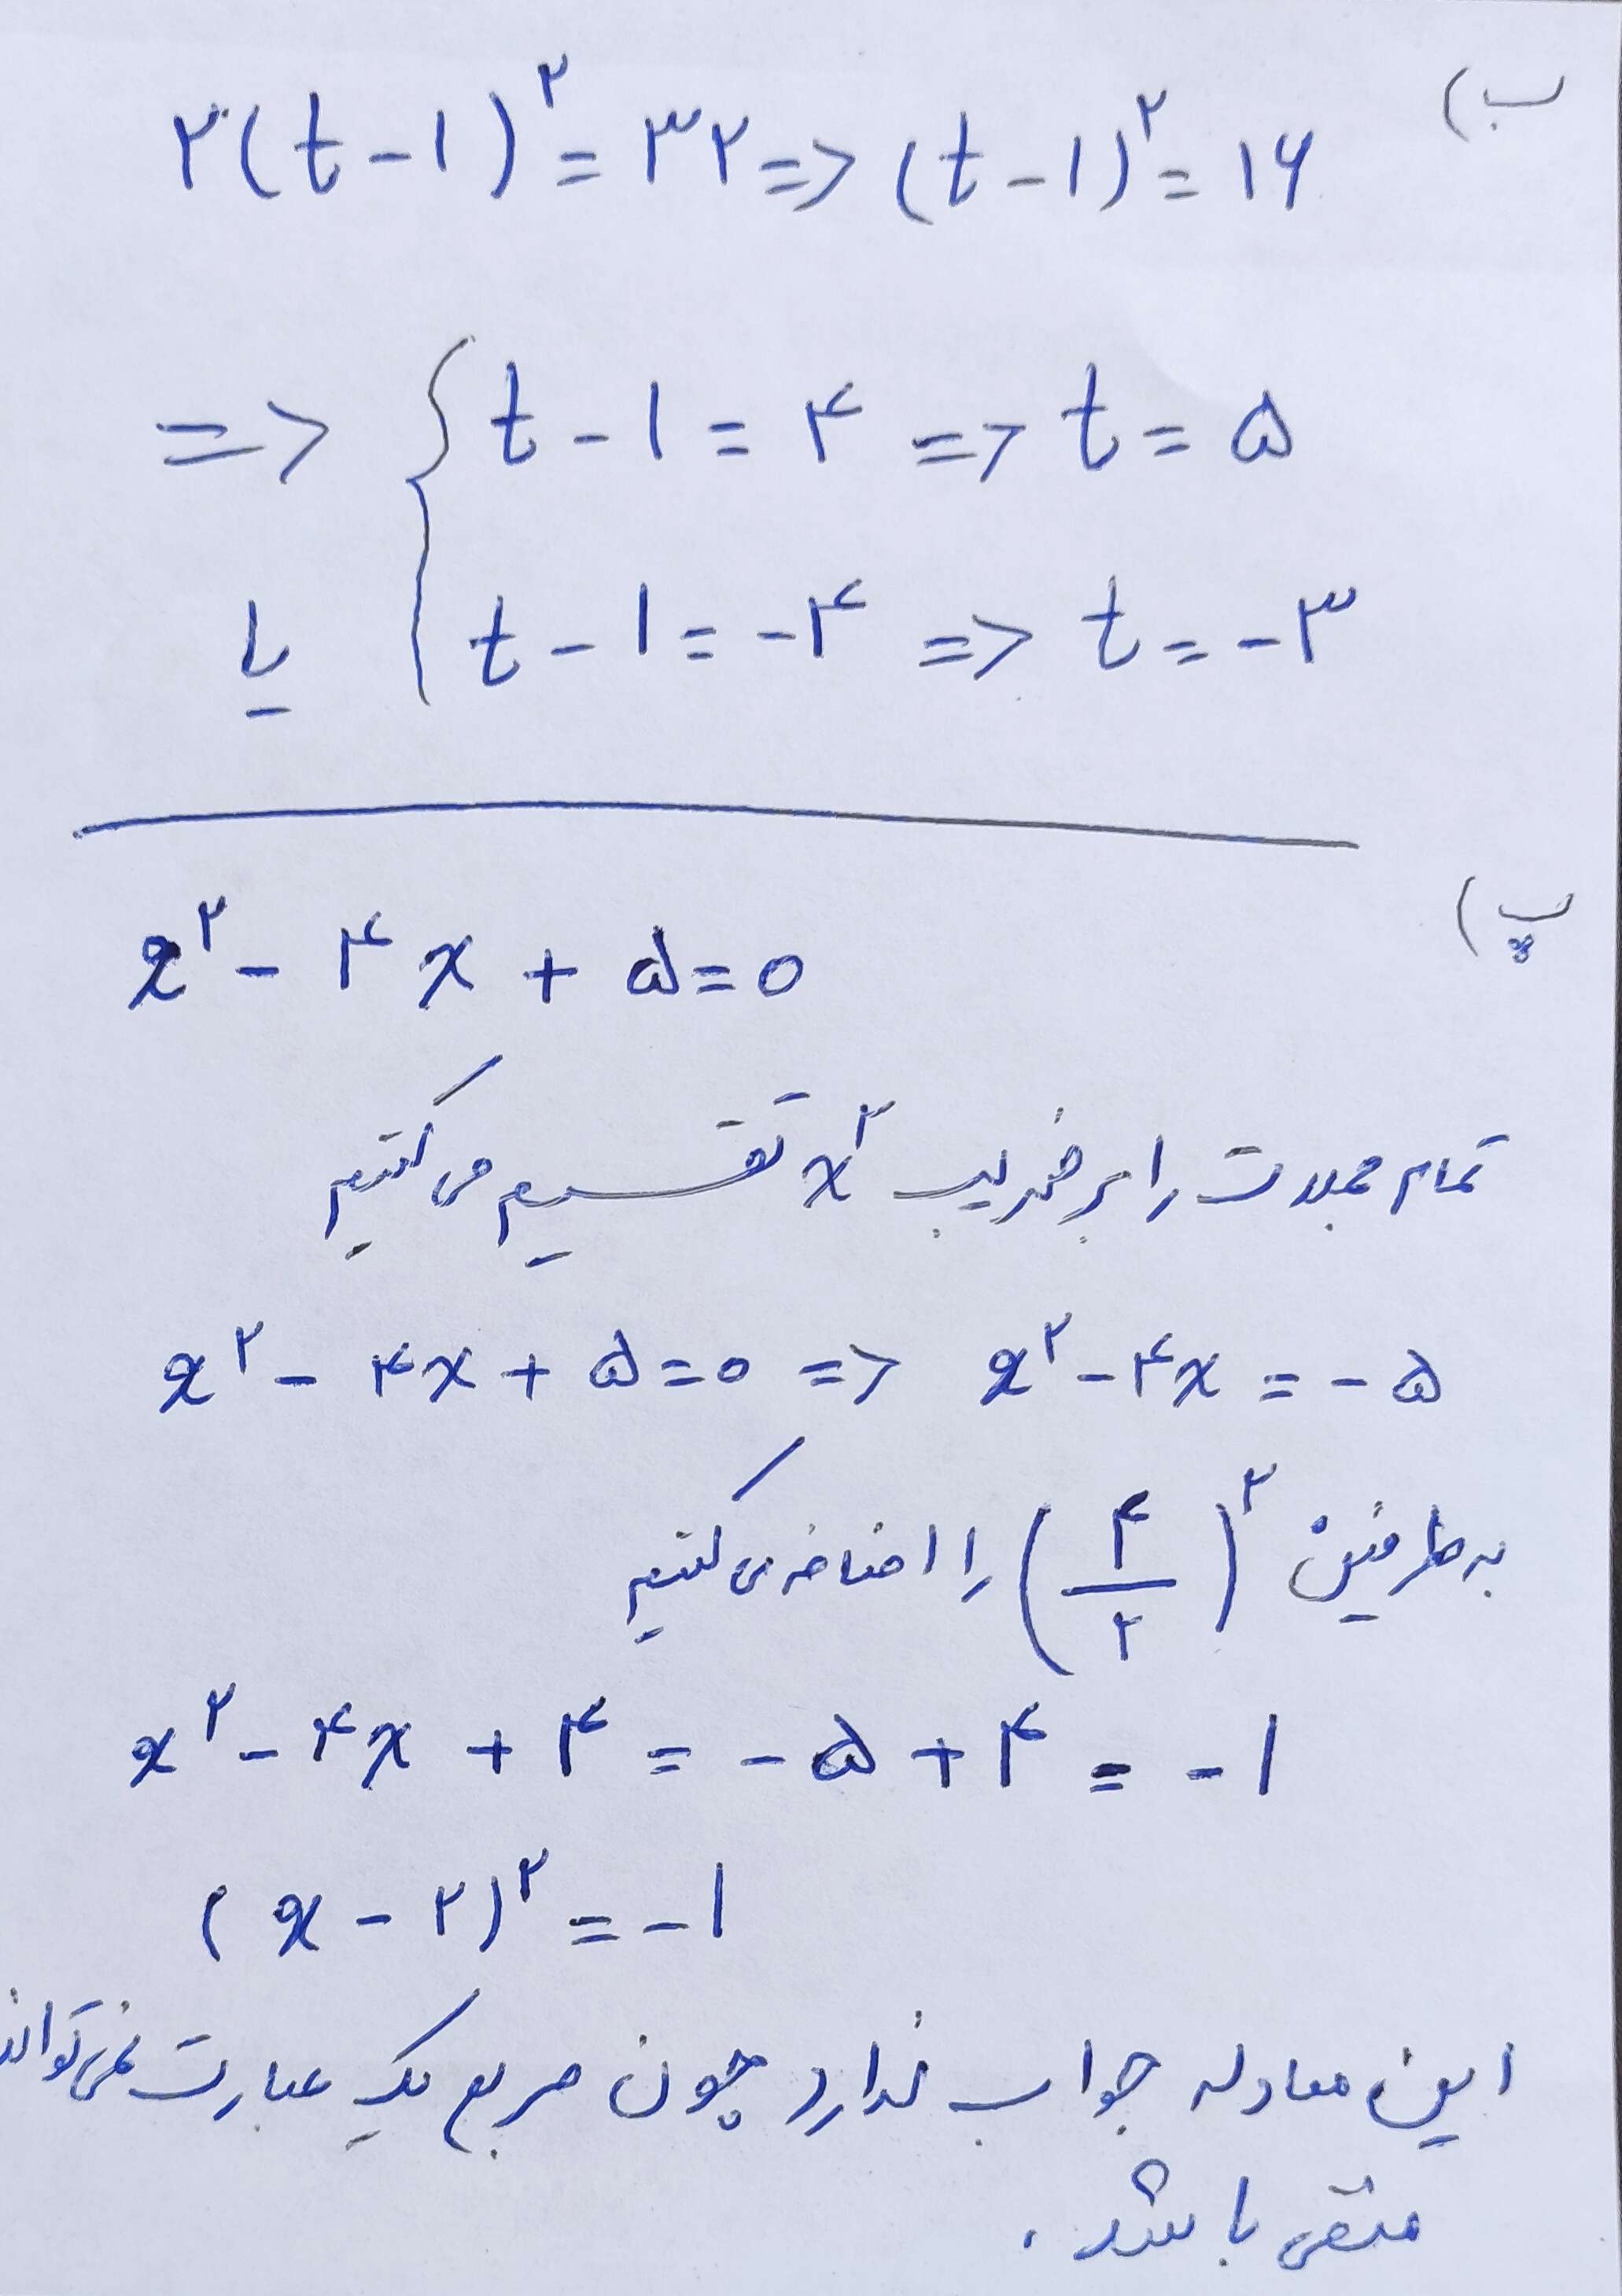 ب)
۲(t-۱)^۲ = ۳۲ => (t-۱)^۲ = ۱۶
=> { t-۱ = ۴ => t = ۵
یا { t-۱ = -۴ => t = -۳
پ)
x^۲ - ۴x + ۵ = ۰
تمام جملات را بر ضریب x^۲ تقسیم می کنیم
x^۲ - ۴x + ۵ = ۰ => x^۲ - ۴x = -۵
به طرفین (۴/۲)^۲ را اضافه می کنیم
x^۲ - ۴x + ۴ = -۵ + ۴ = -۱
(x - ۲)^۲ = -۱
این معادله جواب ندارد چون مربع یک عبارت نمی تواند
منفی باشد.